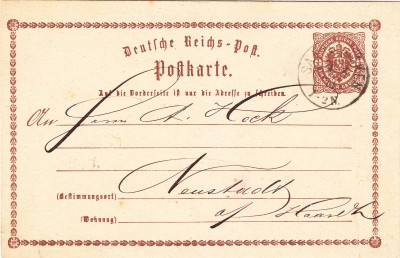 Deutsche Reichs-Post.
Postkarte.
Auf die Vorderseite ist nur die Adresse zu schreiben.
An Herrn A. Hock
Neustadt
(Bestimmungsort)
a/ Haardt
(Wohnung)